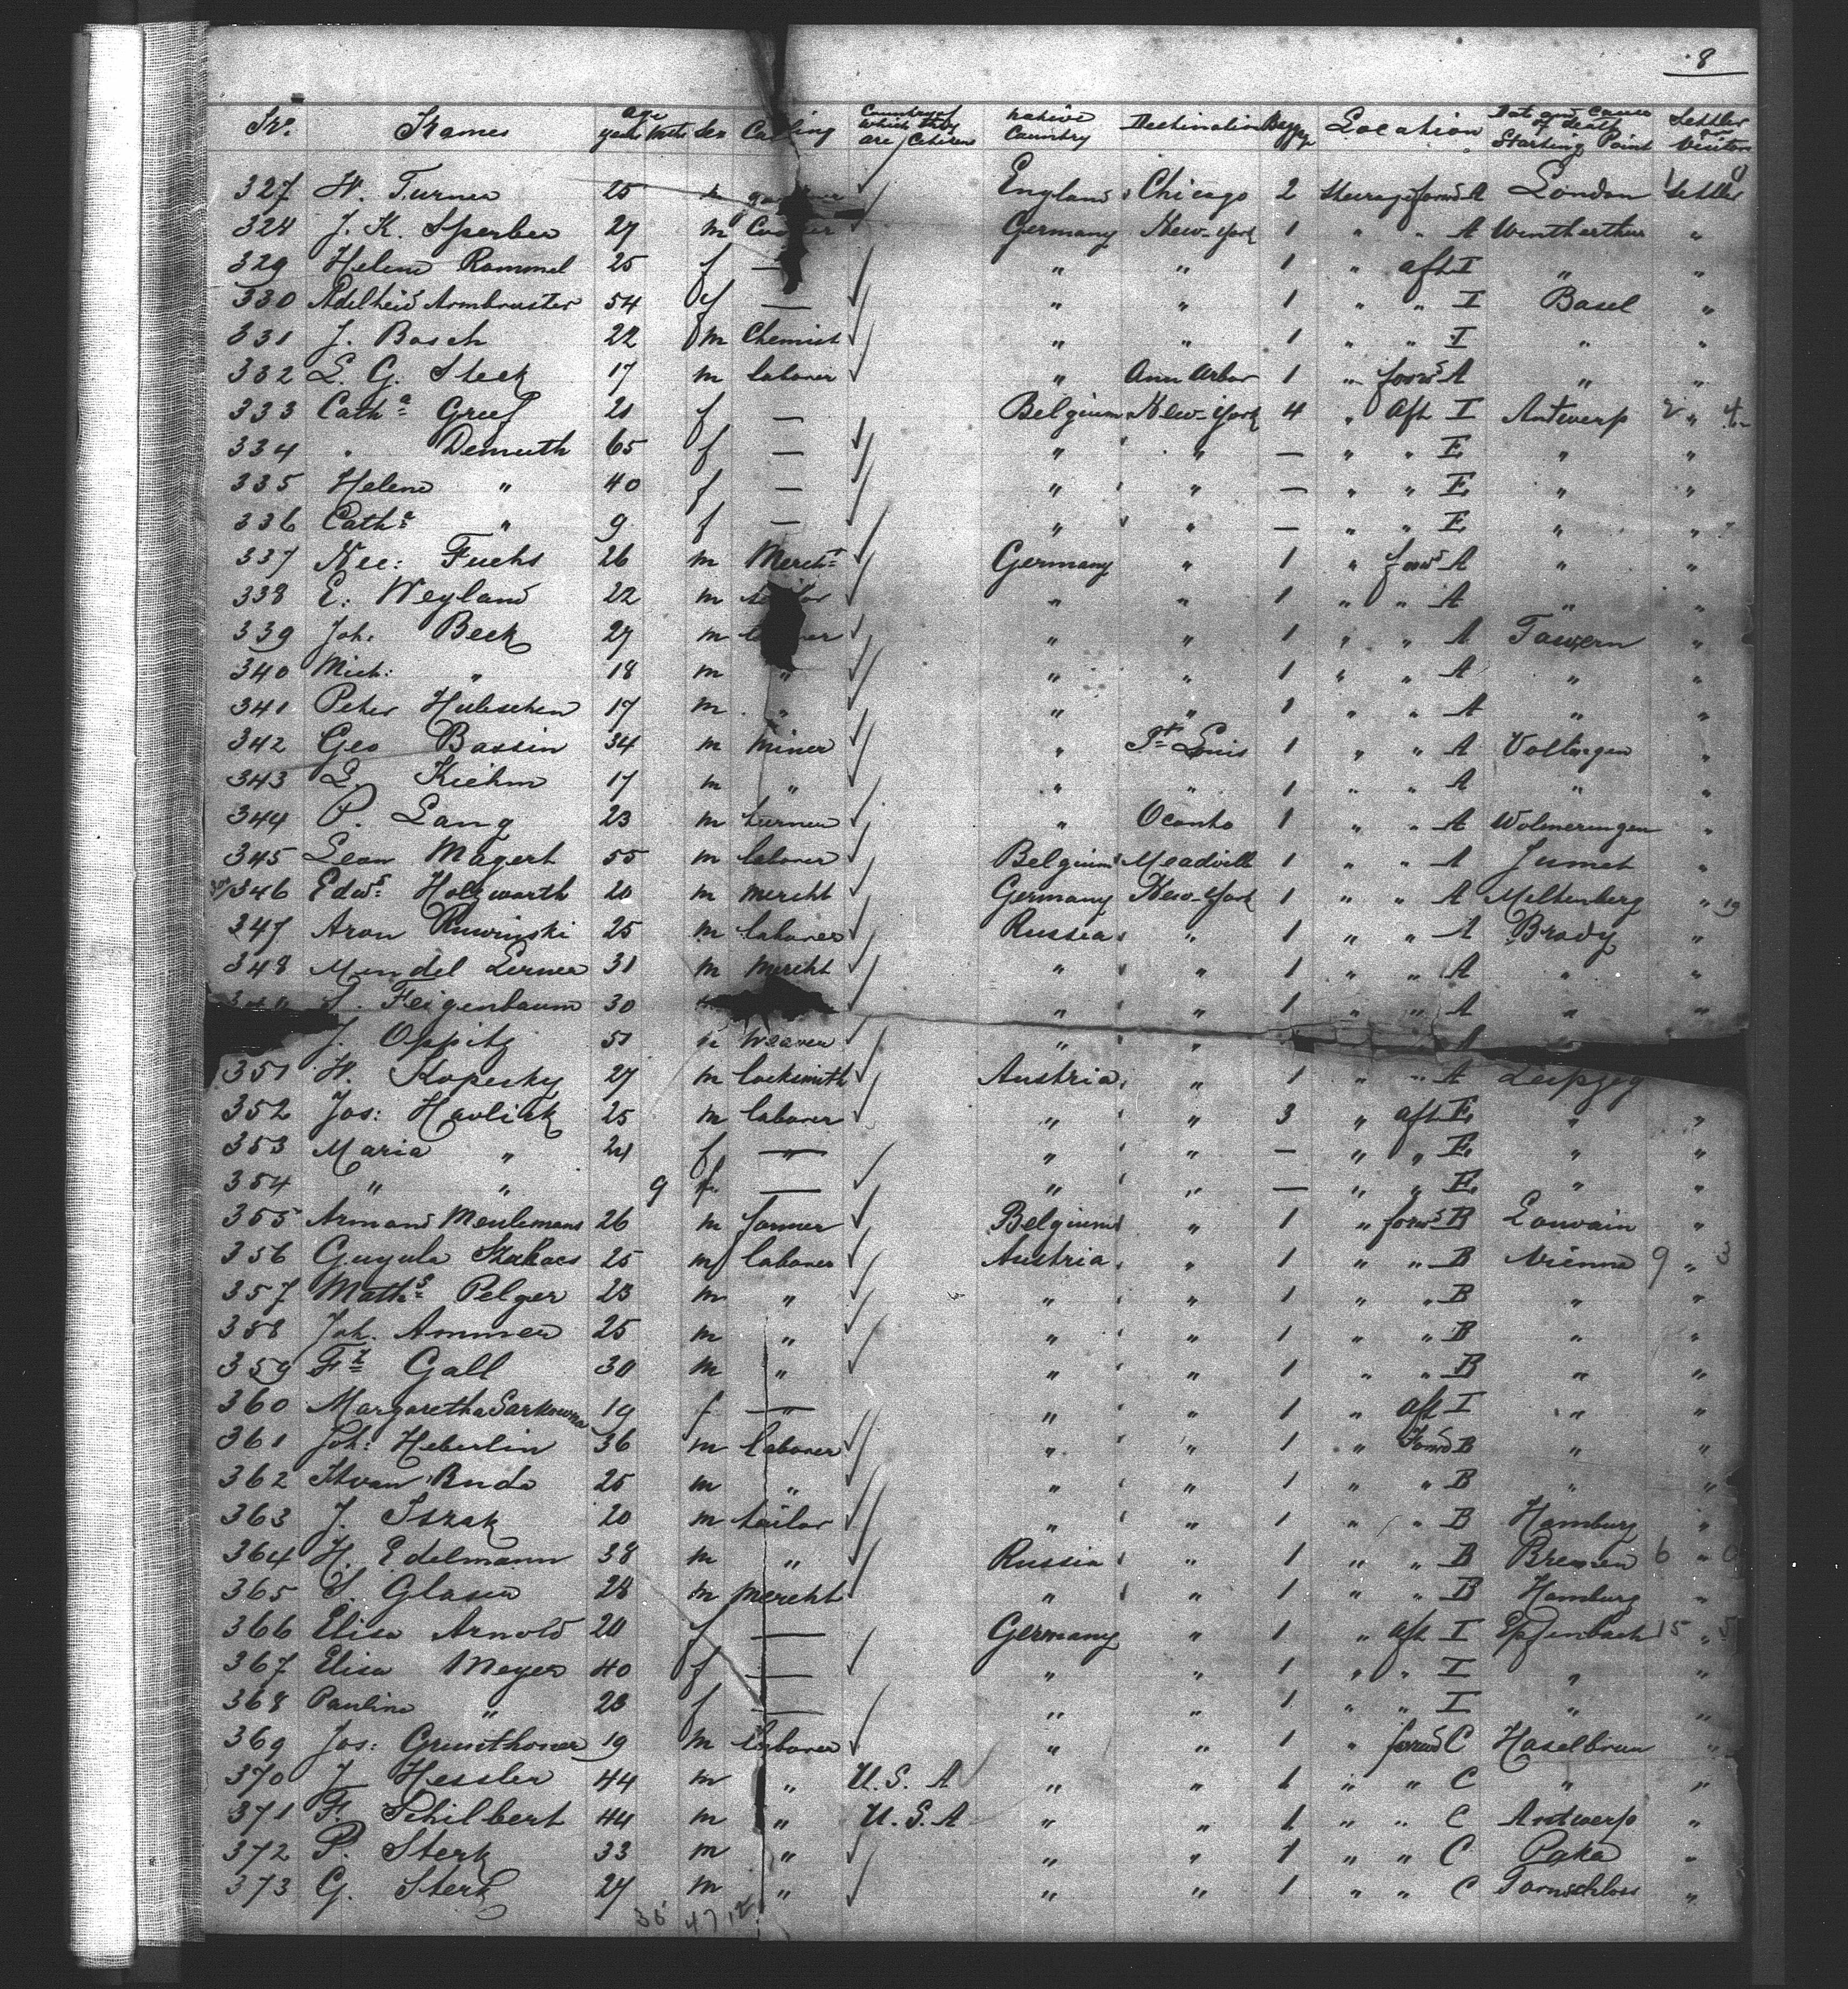 8
No. Names Age years Mths Sex Calling Country of which they are Citizens Native Country Destination Location Date and Cause of death Starting Point Settler or Visitors
327 W. Turner 25 England Chicago 2 Steerage forwd A London Settler
328 J. K. Sperber 27 m Germany New-York 1 " " A Wintherthur "
329 Helene Rommel 25 f — " " 1 " aft I " "
330 Adelheid Armbruster 54 f — " " 1 " " I Basel "
331 J. Bosch 22 m Chemist " " 1 " " I " "
332 L. G. Steck 17 m laborer " Ann Arbor 1 " forwd A " "
333 Catha 21 f — Belgium New-York 4 " aft I Antwerp 2 " 4
334 " Demuth 65 f — " " — " " E " "
335 Helene " 40 f — " " — " " E " "
336 Catha " 9 f — " " — " " E " "
337 Fuchs 26 m Mercht Germany " 1 " forwd A " "
338 E. Weyland 22 m " " 1 " " A " "
339 Joh. Beck 27 m " " 1 " " A Tawern "
340 Mich: " 18 m " " " 1 " " A " "
341 Peter 17 m " " " 1 " " A " "
342 Geo Bassin 34 m miner " St Louis 1 " " A "
343 L. Kiehm 17 m " " " 1 " " A " "
344 P. Lang 23 m turner " Oconto 1 " " A Wolmeringen "
345 Leon Magert 55 m laborer Belgium Meadville 1 " " A Jumet "
346 Edwd Holzwarth 20 m mercht Germany New-York 1 " " A Miltenberg " 19
347 Aron Ruwinski 25 m laborer Russia " 1 " " A Brody "
348 Mendel Lerner 31 m mercht " " 1 " " A " "
Feigenbaum 30 " " 1 " " A " "
J. Oppitz 51 weaver " " A
351 W. Kopecky 27 m locksmith Austria " 1 " " A Leipzig
352 Jos: Havlick 25 m laborer " " 3 " aft E " "
353 Maria " 24 f — " " — " " E " "
354 " " 9 f — " " — " " E " "
355 Armand Meulemans 26 m farmer Belgium " 1 " forwd B Louvain "
356 25 m laborer Austria " 1 " " B Vienna 9 " 3
357 Maths Pelger 23 m " " " 1 " " B " "
358 Joh. Ammer 25 m " " " 1 " " B " "
359 Gall 30 m " " " 1 " " B " "
360 Margaretha 19 f — " " 1 " aft I " "
361 Joh: Heberlin 36 m laborer " " 1 " Forwd B " "
362 Buda 25 m " " " 1 " " B " "
363 J. 20 m tailor " " 1 " " B Hamburg "
364 H. Edelmann 38 m " Russia " 1 " " B Bremen 6 "
365 S. Glaser 28 m mercht " " 1 " " B Hamburg "
366 Elisa Arnold 20 f — Germany " 1 " aft I Epfenbach 15 " 5
367 Elisa Meyer 40 f — " " 1 " " I " "
368 Pauline " 23 f — " " 1 " " I " "
369 Jos: 19 m laborer " " 1 " forwd C Haselbrun "
370 J Hessler 44 m " U.S. A " " 1 " " C " "
371 F. Schilbert 44 m " U.S.A " " 1 " " C Antwerp "
372 P. Sterk 33 m " " " 1 " " C "
373 G. Sterk 27 m " " " 1 " " C "